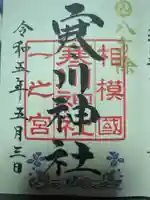 八方除
寒川神社
相模國
一之宮
令和五年五月三日